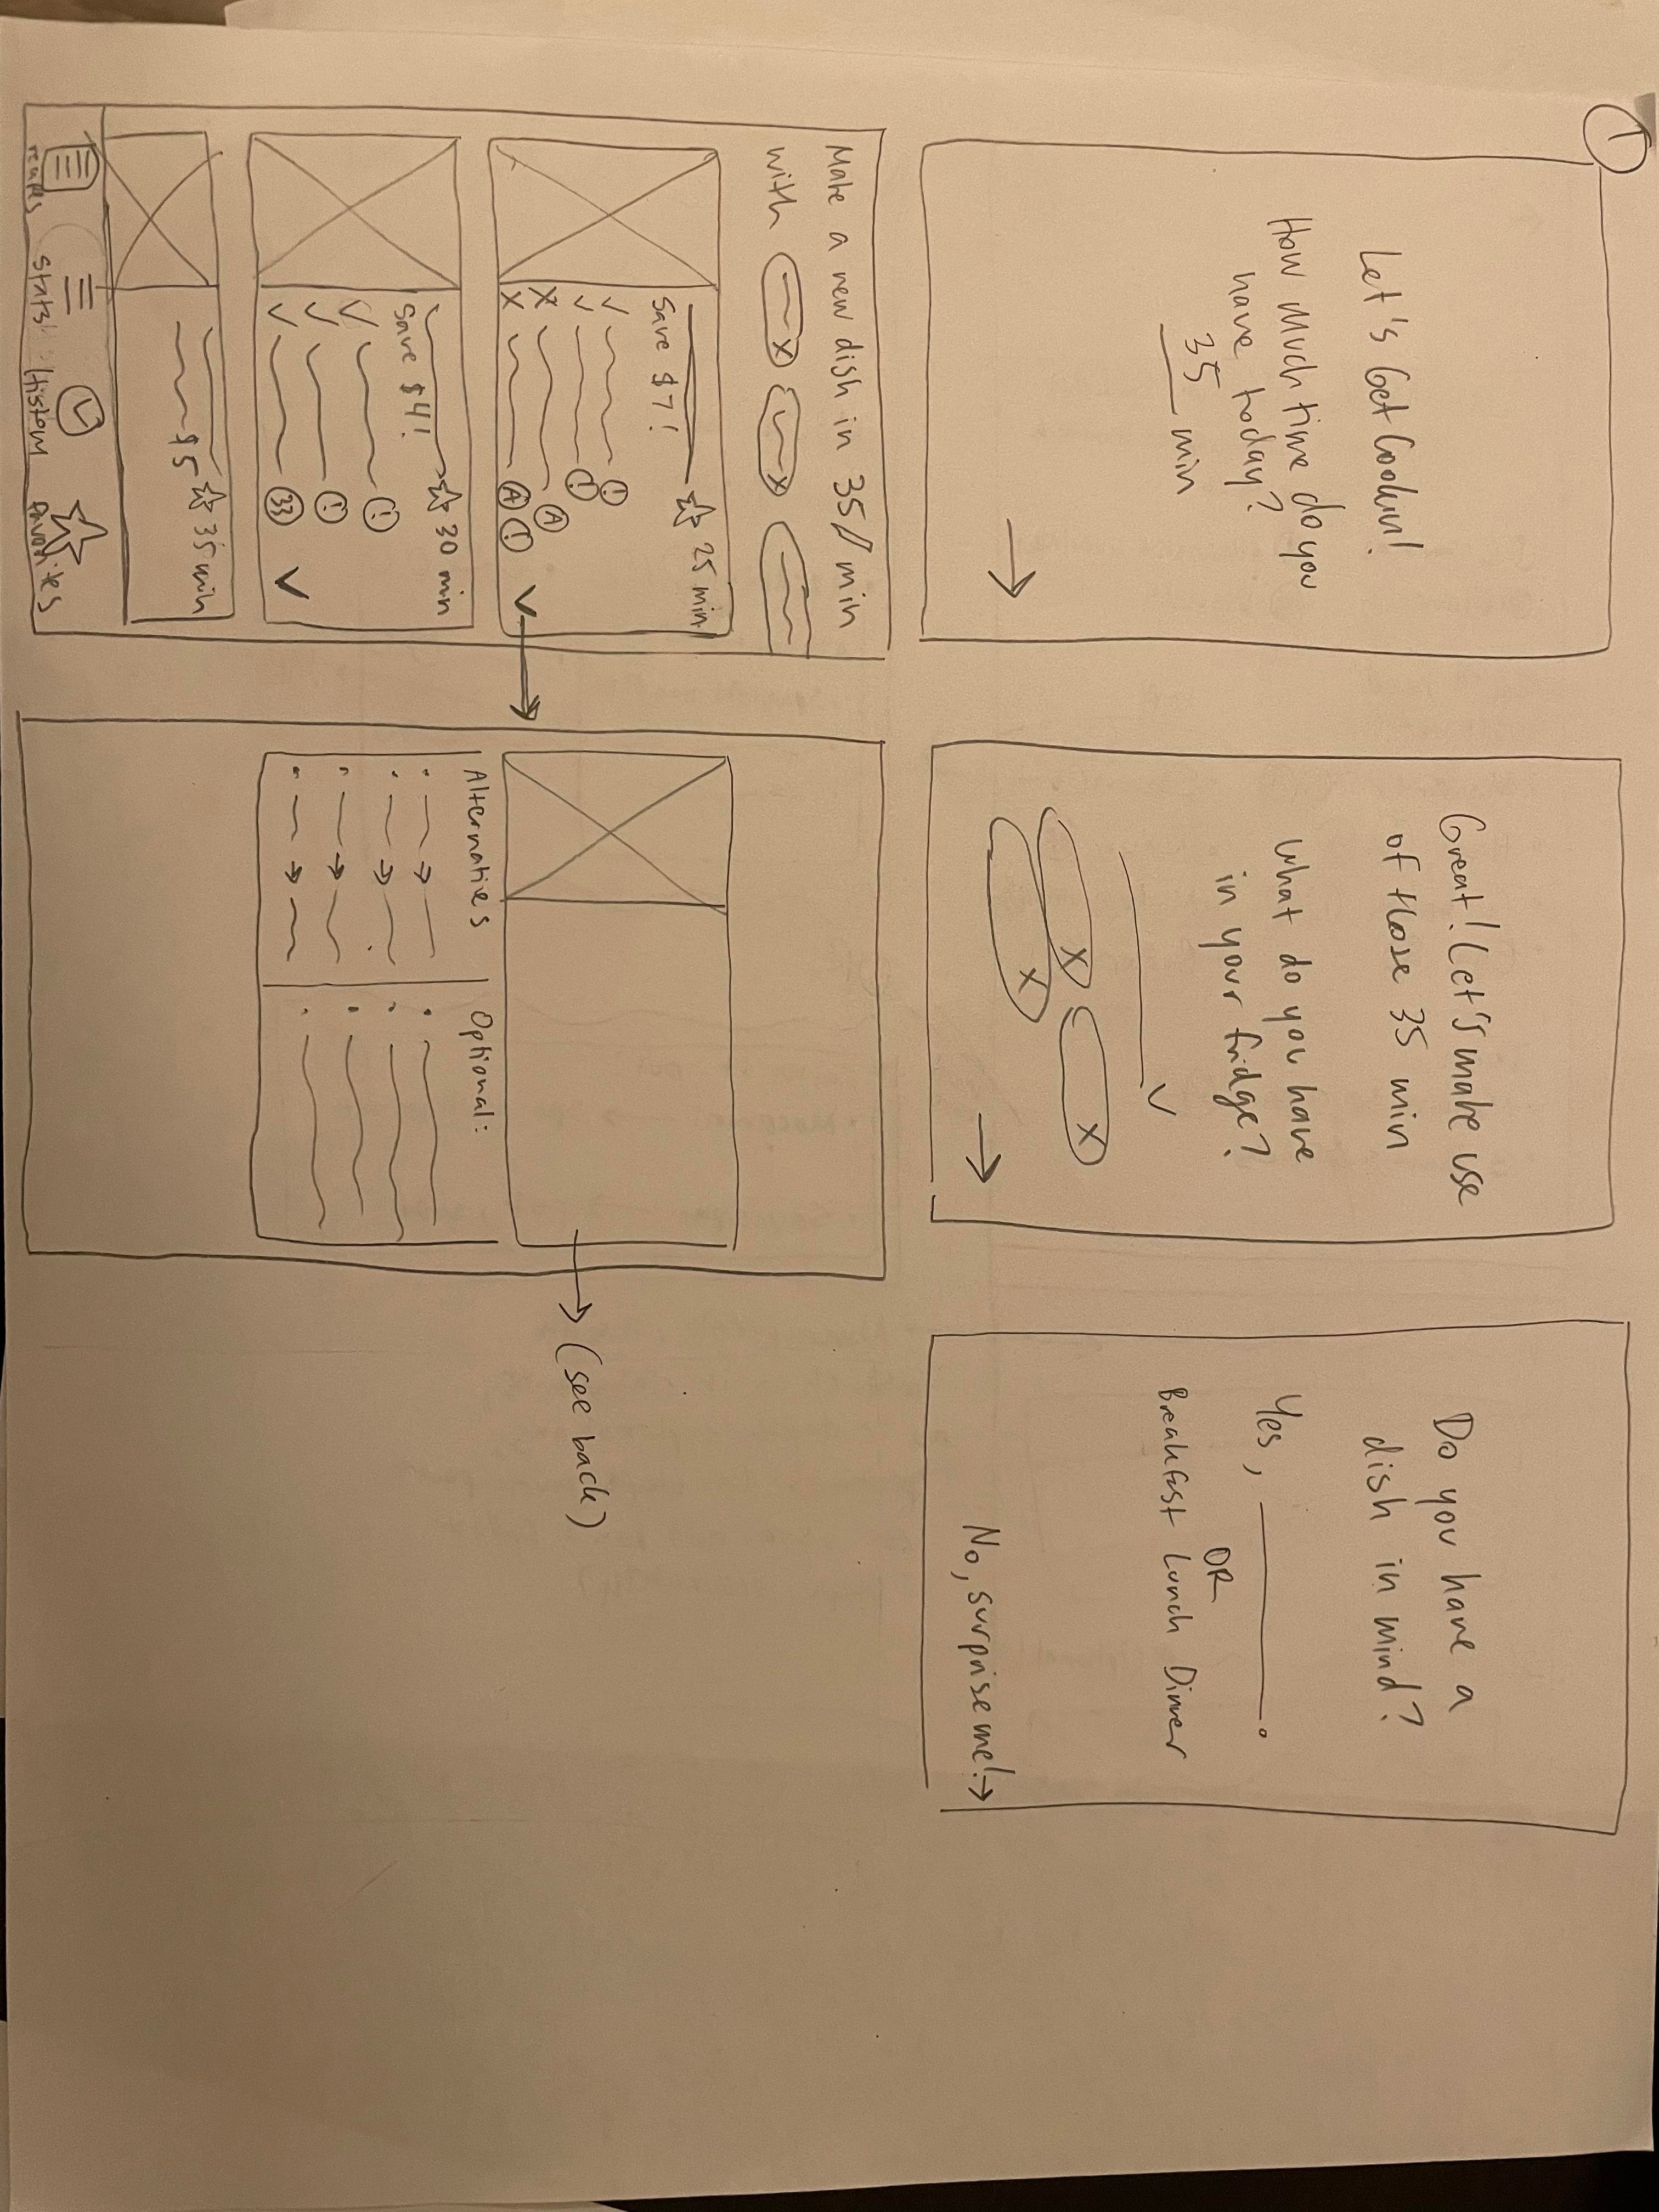 1
Let's Get Cookin!
How Much time do you
have today?
35 min
Great! Let's make use
of those 35 min
What do you have
in your fridge?
X
X
X
Do you have a
dish in mind?
Yes, ________.
OR
Breakfast Lunch Dinner
No, surprise me!→
Make a new dish in 35 min
with X X
25 min
Save $7!
!
!
X A
X A !
30 min
Save $4!
!
!
33
35 min
$5
recipes Stats History favorites
Alternatives Optional:
(see back)